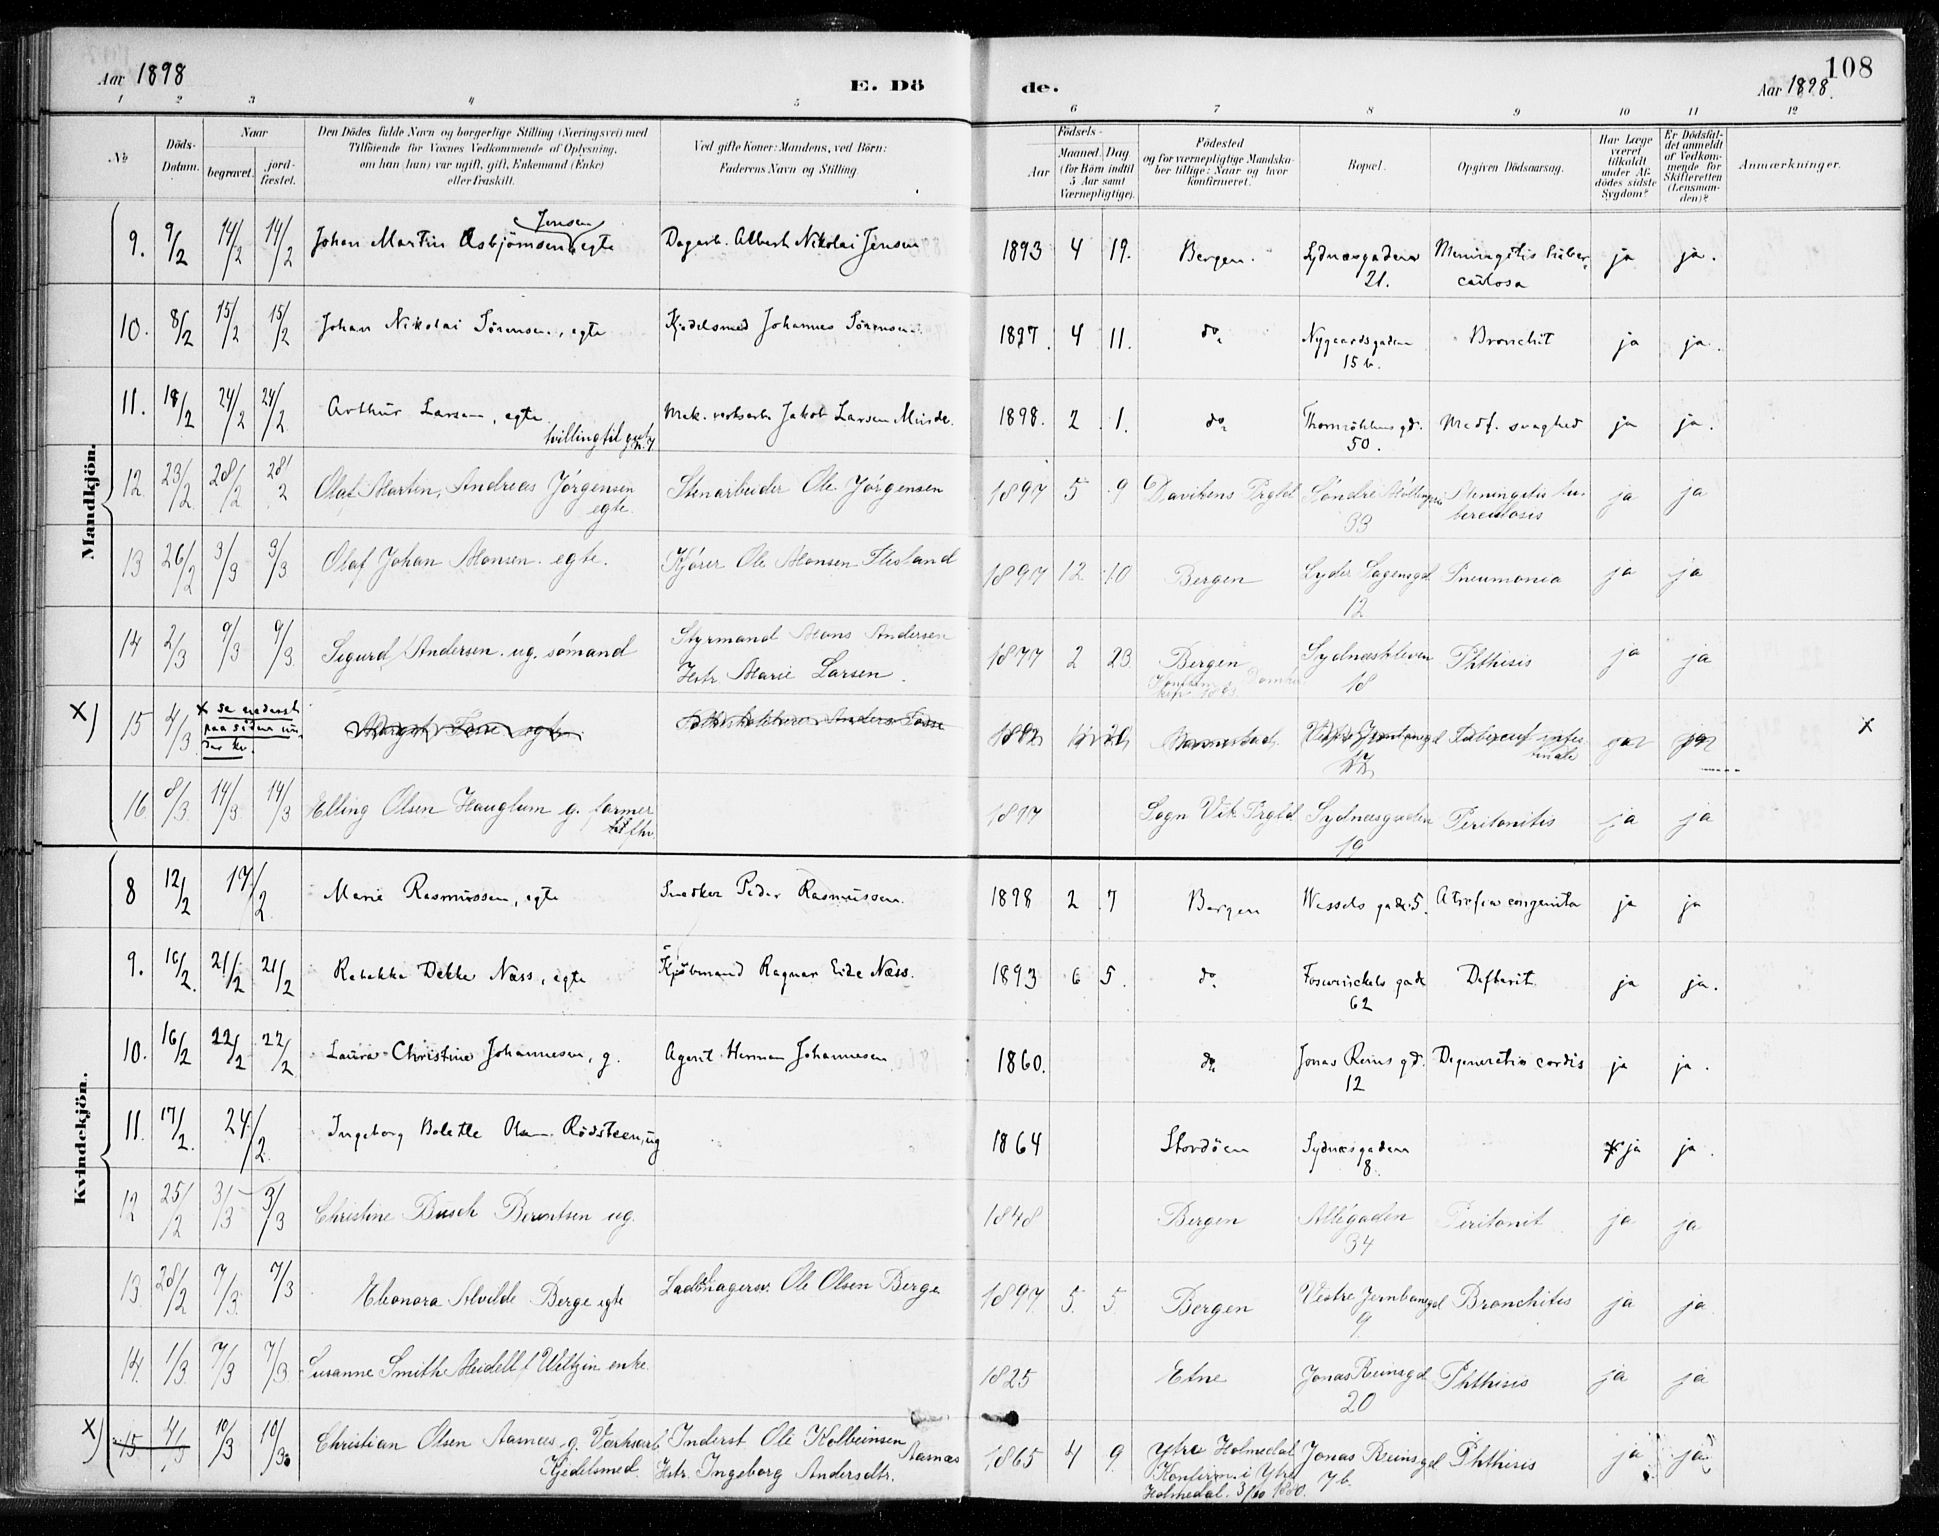 Aar 1898
E. Dö
de.
108
Aar 1898.
1 2 3 4 5 6 7 8 9 10 11 12
No
Döds-
Datum.
Naar
begravet.
jord-
fæstet.
Den Dödes fulde Navn og borgerlige Stilling (Næringsvei) med
Tilföiende for Voxnes Vedkommende af Oplysning,
om han (hun) var ugift, gift, Enkemand (Enke)
eller fraskilt.
Ved gifte Koner: Mandens, ved Börn:
Faderens Navn og Stilling.
Födsels-
Aar
Maaned.
Dag
(for Börn indtil
5 Aar samt
Værnepligtige).
Födested
og for værnepligtige Mandska-
ber tillige: Naar og hvor
konfirmeret.
Bopæl.
Opgiven Dödsaarsag.
Har Læge
været
tilkaldt
under Af-
dödes sidste
Sygdom?
Er Dödsfal-
det anmeldt
af Vedkom-
mende for
Skifteretten
(Lensman-
den)?
Anmærkninger.
Mandkjön.
Jensen
9. 9/2 14/2 14/2 Johan Martin Asbjörnsen egte Dagarb. Albert Nikolai Jensen 1893 4 19. Bergen. Sydnæsgaden Meningitis tuber- ja ja.
21. culosa
10. 8/2 15/2 15/2 Johan Nikolai Sörensen, egte Kjedelsmed Johannes Sörensen 1897. 4 11. do Nygaardsgaden Bronchit ja ja.
15 b.
11. 18/2 24/2 24/2 Arthur Larsen, egte Mek. verksarb Jakob Larsen Minde. 1898. 2 1. do Thormöhlens gd. Medf. svaghed ja ja.
tvilling til 50.
12. 23/2 28/2 28/2 Olaf Marten, Andreas Jörgensen Stenarbeider Ole Jörgensen 1897 5 9 Davikens Prgld Söndre Meningitis tu- ja ja
egte. 33 berculosis
13 26/2 3/3 3/3 Olaf Johan Monsen. egte. Kjörer Ole Monsen Flesland 1897 12 10 Bergen Lyder Sagensgd Pneumonia ja ja
12
14 2/3 9/3 9/3 Sigurd Andersen. ug. sömand Styrmand Mons Andersen 1877 2 23. Bergen Sydnæskleven Phthisis ja ja
Hstr Marie Larsen. 18
X) 15 4/3 x se nederst egte 1882 X
paa siden un-
der kv. 17
16 8/3 14/3 14/3 Elling Olsen Hauglum g. farmer 1897 Sogn Vik Prgld Sydnæsgaden Peritonitis ja ja
19
Kvindekjön.
8 12/2 17/2 Marie Rasmussen, egte Snedker Peder Rasmussen. 1898 2 7 Bergen Wessels gade 5. Atrofia congenita ja ja
9. 16/2. 21/2 21/2 Rebekka Dekke Næss, egte Kjöbmand Ragnar Eide Næss. 1893 6 5. do Foswinckels gade Defterit ja ja.
62
10. 16/2 22/2 22/2 Laura Christine Johannesen, g. Agent Herman Johannesen 1860. do Jonas Reins gd. Degeneratio cordis ja ja.
12
11. 17/2. 24/2 Ingeborg Bolette Olsen Rödsteen, ug 1864 Stordöen Sydnæsgaden ja ja.
8.
12 25/2 3/3 3/3 Christine Busch Berentsen ug. 1848 Bergen Allégaden Peritonit ja ja
34
13. 28/2 7/3 7/3 Eleonora Alvilde Berge egte Ole Olsen Berge 1897 5. 5. Bergen Vestre Jernbanegd Bronchitis ja ja
9.
14. 1/3 7/3 7/3 Susanne Smithe Meidell f. Weltzin enke 1825 Etne Jonas Reinsgd Phthisis ja ja
20
X) 15 4/3 10/3 10/3. Christian Olsen Aarnæs g. Værksarb Inderst Ole Kolbeinsen Aarnæs 1865 4 9. Ytre Holmedal Jonas Reinsgd Phthisis ja ja
Kjedelsmed. Hstr. Ingeborg Andersdtr. Konfirm. i Ytre 7 b.
Holmedal. 3/10 1880.